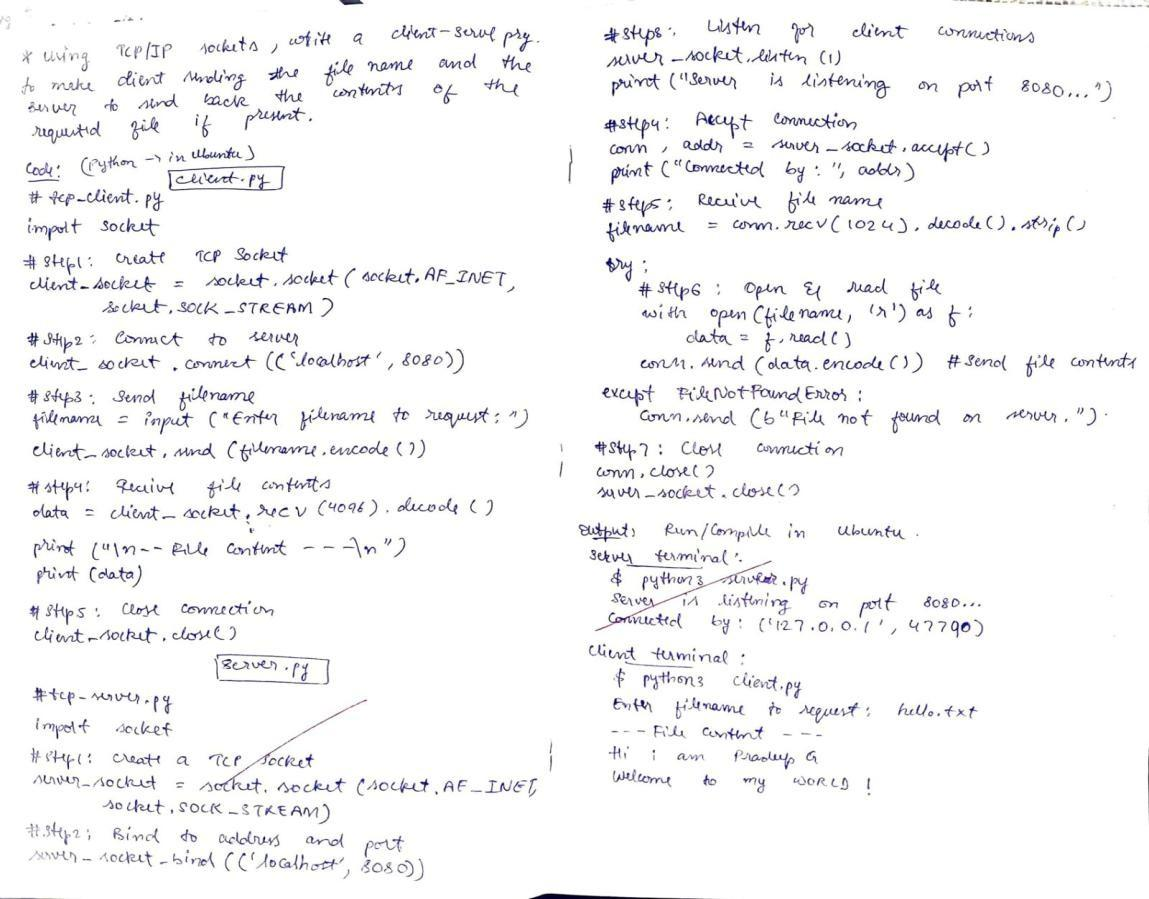 * Using TCP/IP sockets, write a client-serve prg.
to make client sending the file name and the
server to send back the contents of the
requested file if present.
Code: (Python → in Ubuntu)
client.py
# tcp-client.py
import socket
# Step1: Create TCP Socket
client_socket = socket.socket(socket.AF_INET,
socket.SOCK_STREAM)
# Step2: Connect to server
client_socket.connect(('localhost', 8080))
# Step3: Send filename
filename = input("Enter filename to request: ")
client_socket.send(filename.encode())
# step4: Receive file contents
data = client_socket.recv(4096).decode()
print("\n-- File Content ---\n")
print(data)
# Step5: Close connection
client_socket.close()
server.py
#tcp-server.py
import socket
# Step1: Create a TCP Socket
server_socket = socket.socket(socket.AF_INET,
socket.SOCK_STREAM)
#.Step2: Bind to address and port
server_socket_bind(('localhost', 8080))
#Step3: Listen for client connections
server_socket.listen(1)
print("Server is listening on port 8080...")
#Step4: Accept connection
conn, addr = server_socket.accept()
print("Connected by:", addr)
#Step5: Receive file name
filename = conn.recv(1024).decode().strip()
try:
# Step6: Open & read file
with open(filename, 'r') as f:
data = f.read()
conn.send(data.encode()) #Send file contents
except FileNotFoundError:
conn.send(b"File not found on server.").
#Step.7: Close connection
conn.close()
server_socket.close()
Output: Run/Compile in Ubuntu.
Server terminal:
$ python3 server.py
Server is listening on port 8080...
Connected by: ('127.0.0.1', 47790)
Client terminal:
$ python3 client.py
Enter filename to request: hello.txt
--- File Content ---
Hi i am Pradeep G
Welcome to my WORLD!